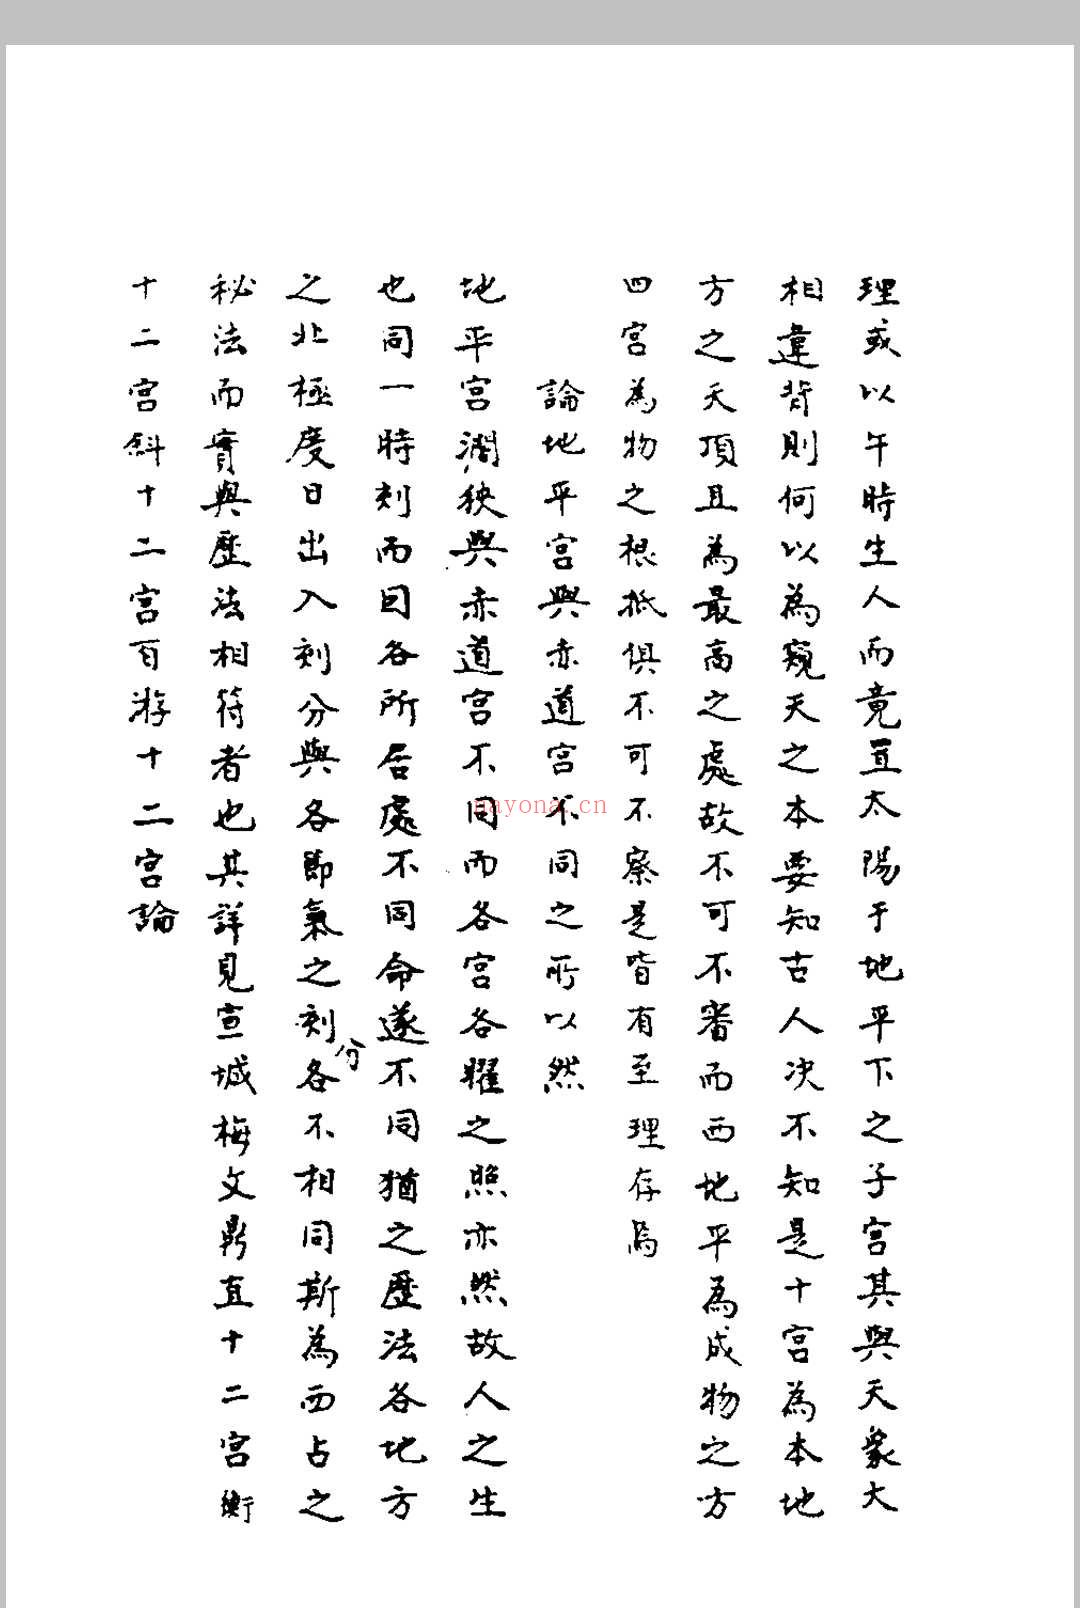 理或以午時生人而竟置太陽于地平下之子宮其與天象大
相違背則何以為窺天之本要知古人決不知是十宮為本地
方之天頂且為最高之處故不可不審而西地平為成物之方
四宮為物之根抵俱不可不察是皆有至理存焉
論地平宮與赤道宮不同之所以然
地平宮濶狹與赤道宮不同而各宮各曜之照亦然故人之生
也同一時刻而因各所居處不同命遂不同猶之歷法各地方
之北極度日出入刻分與各節氣之刻分各不相同斯為西占之
秘法而實與歷法相符者也其詳見宣城梅文鼎直十二宮衡
十二宮斜十二宮百游十二宮論
nayona.cn